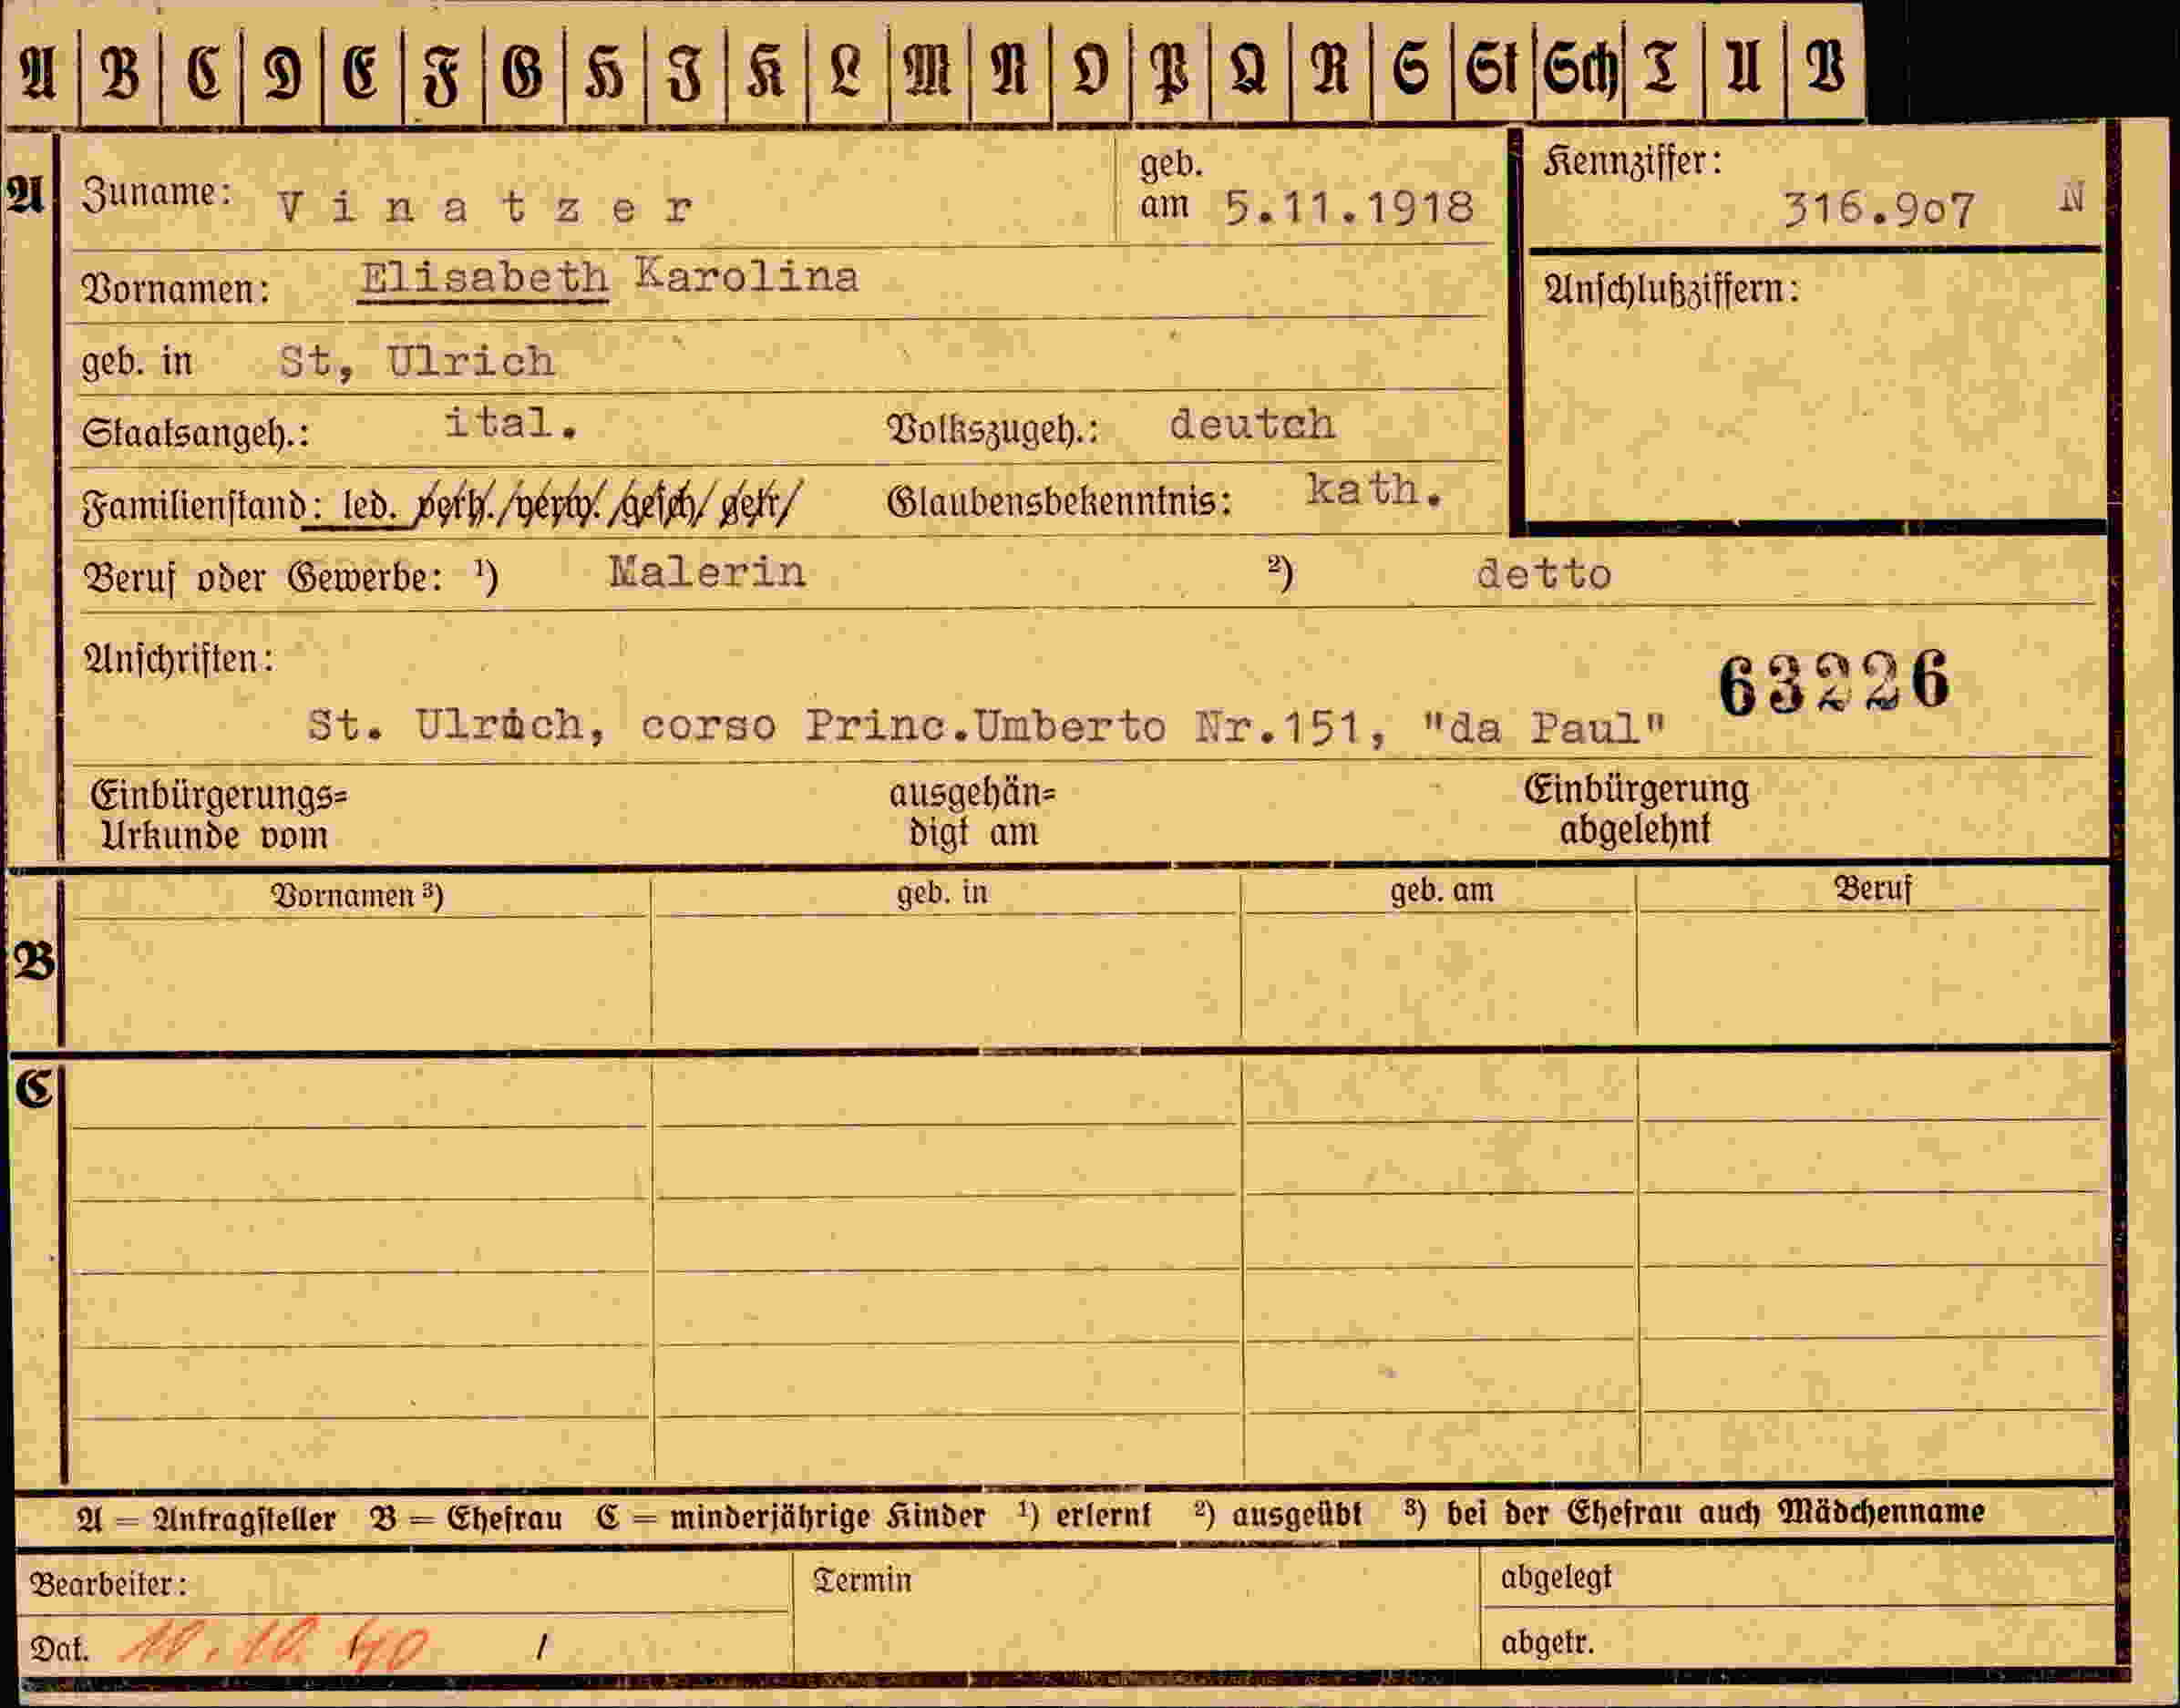 A B C D E F G H I K L M N O P Q R S St Sch T U V
A Zuname: Vinatzer geb. am 5.11.1918 Kennziffer: 316.907 N
Vornamen: Elisabeth Karolina Anschlußziffern:
geb. in St, Ulrich
Staatsangeh.: ital. Volkszugeh.: deutch
Familienstand: led. verh./verw./gesch/getr/ Glaubensbekenntnis: kath.
Beruf oder Gewerbe: ¹) Malerin ²) detto
Anschriften: 63226
St. Ulrich, corso Princ.Umberto Nr.151, "da Paul"
Einbürgerungs= ausgehän= Einbürgerung
Urkunde vom digt am abgelehnt
Vornamen ³) geb. in geb. am Beruf
B
C
A = Antragsteller B = Ehefrau C = minderjährige Kinder ¹) erlernt ²) ausgeübt ³) bei der Ehefrau auch Mädchenname
Bearbeiter: Termin abgelegt
Dat. 10.10.40 / abgetr.